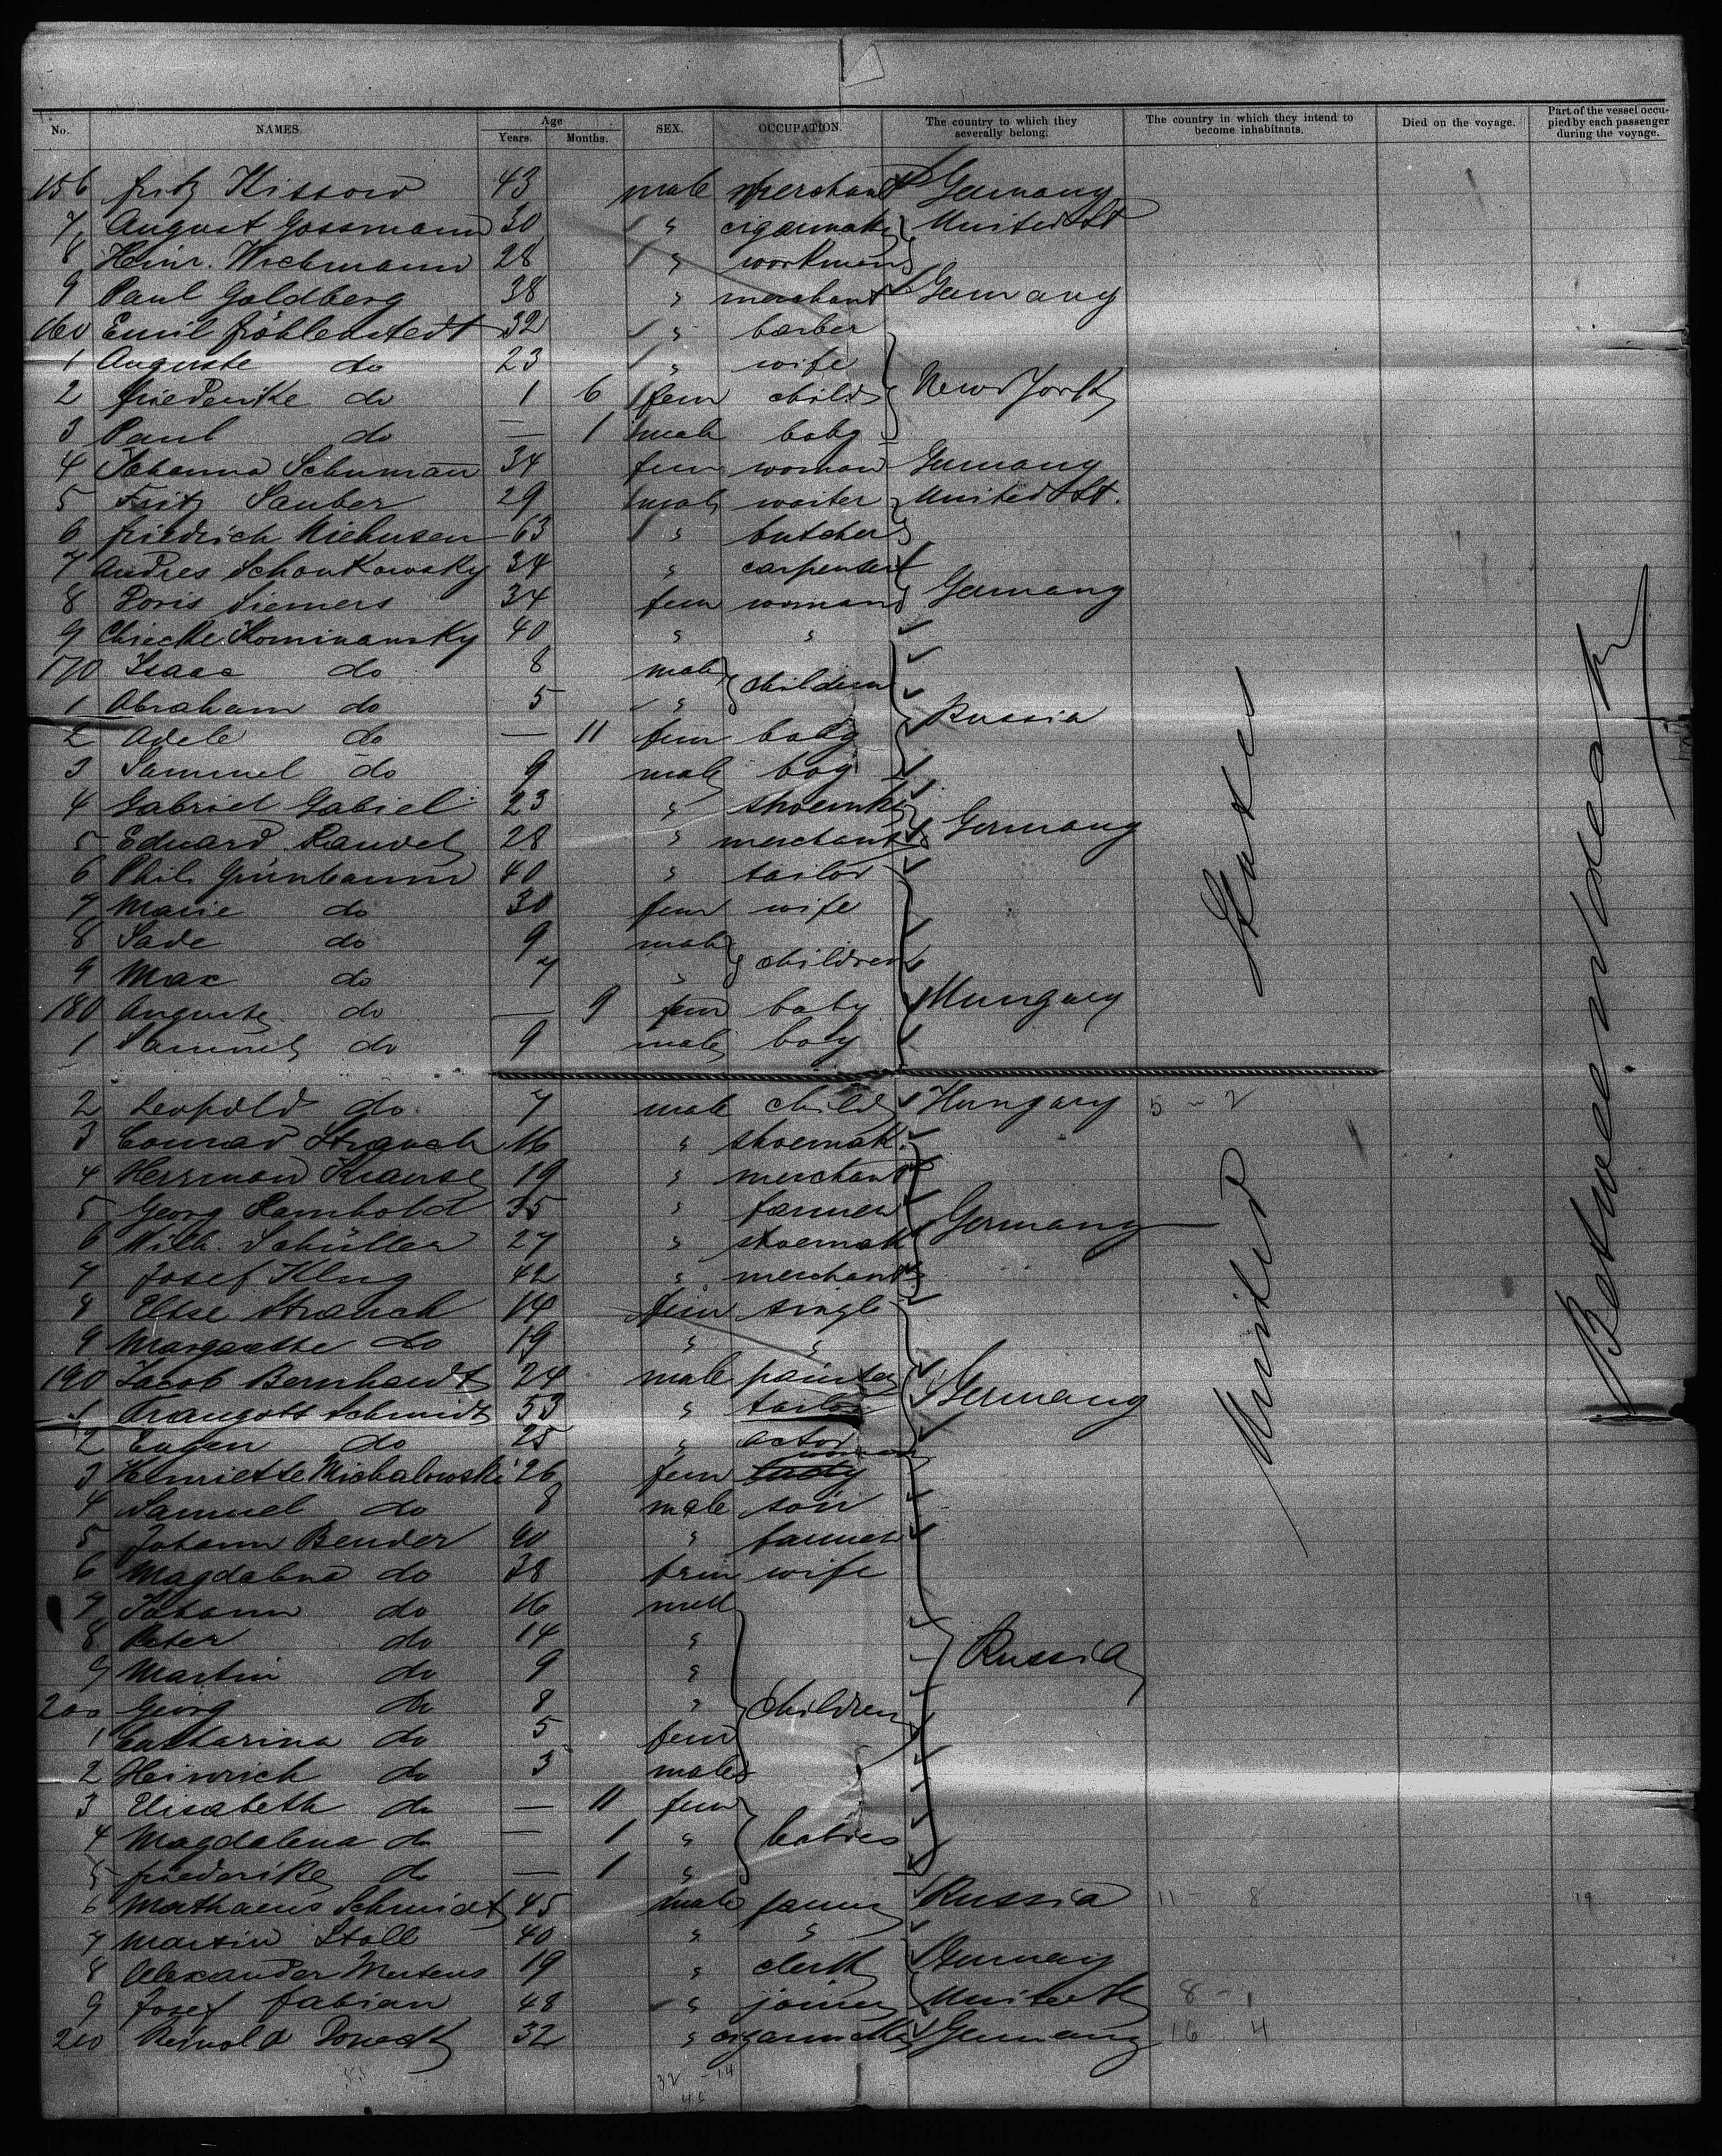 No. NAMES. Age Years. Months. SEX. OCCUPATION. The country to which they severally belong. The country in which they intend to become inhabitants. Died on the voyage. Part of the vessel occupied by each passenger during the voyage.
156 Fritz Kissow 43 male merchant Germany
7 August Gossmann 30 " cigarmak United St
8 Heinr. Wichmann 28 " workman
9 Paul Goldberg 38 " merchant Germany
160 Emil 32 " barber
1 Auguste do 23 " wife
2 Friederike do 1 6 fem child New York
3 Paul do — 1 male baby
4 Johanna Schumann 34 fem woman Germany
5 Fritz Sauber 29 male waiter United St.
6 Friedrich Niehusen 63 " butcher
7 Andres Schonkowsky 34 " carpenter
8 Doris Siemers 34 fem woman Germany
9 Kominansky 40 " "
170 Isaac do 8 male children
1 Abraham do 5 " Russia
2 Adele do — 11 fem baby
3 Sammel do 9 male boy
4 Gabriel Gabiel 23 " shoemk
5 Eduard 28 " merchant Germany
6 Phil. Grünbaum 40 " tailor
7 Marie do 30 fem wife
8 Sade do 9 male children
9 Max do 7 "
180 Auguste do — 9 fem baby Hungary
1 Sammel do 9 male boy
2 Leopold do 7 male child Hungary 5 - 2
3 Conrad Strauch 16 " shoemak.
4 Herrman Krause 19 " merchant
5 Georg Rambold 35 " farmer Germany
6 Wilh. Schüller 27 " shoemak
7 Josef Klug 42 " merchant
8 Else Strauch 14 fem single
9 Margarethe do 19 " "
190 Jacob Bernhardt 24 male painter Germany
1 Traugott Schmidt 53 " tailor
2 Eugen do 25 " actor
3 Henriette Michalowski 26 fem woman
4 Samuel do 8 male son
5 Johann Bender 40 " farmer
6 Magdalena do 38 fem wife
7 Johann do 16 male
8 Peter do 14 "
9 Martin do 9 " Russia
200 Georg do 8 " children
1 Catharina do 5 fem
2 Heinrich do 3 male
3 Elisabeth do — 11 fem
4 Magdalena do — 1 " babies
5 Friederike do — 1 "
6 Mathaeus Schmidt 45 male farmer Russia 11 - 8
7 Martin Stoll 40 " "
8 Alexander Mertens 19 " clerk Germany
9 Josef Fabian 48 " joiner United St 8 - 1
210 Reinold 32 " cigarmak Germany 16 4
United States
Between deck
32 - 14
46